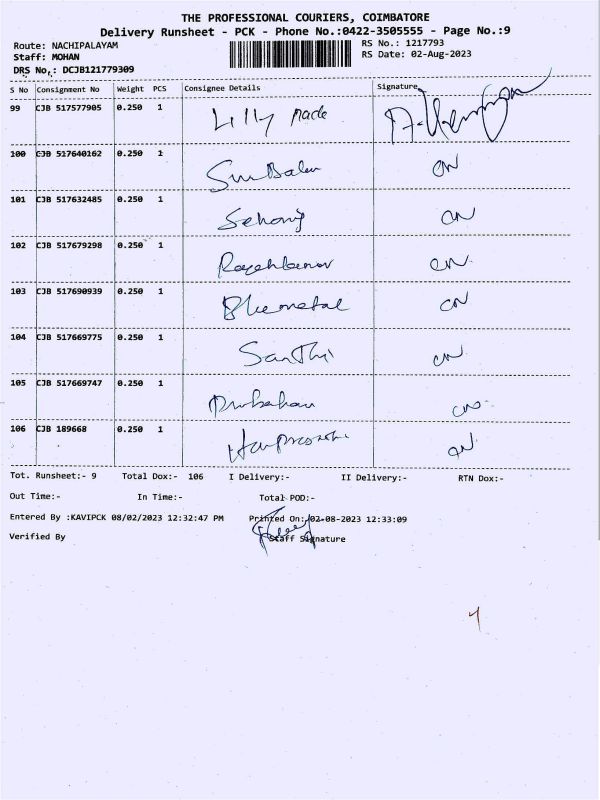 THE PROFESSIONAL COURIERS, COIMBATORE
Delivery Runsheet - PCK - Phone No.:0422-3505555 - Page No.:9
Route: NACHIPALAYAM
RS No.: 1217793
Staff: MOHAN
RS Date: 02-Aug-2023
DRS No.: DCJB121779309
S No Consignment No Weight PCS Consignee Details Signature
99 CJB 517577905 0.250 1 Lilly Made
100 CJB 517640162 0.250 1
101 CJB 517632485 0.250 1
102 CJB 517679298 0.250 1
103 CJB 517690939 0.250 1 Bluemetal
104 CJB 517669775 0.250 1 Santhi
105 CJB 517669747 0.250 1
106 CJB 189668 0.250 1
Tot. Runsheet:- 9 Total Dox:- 106 I Delivery:- II Delivery:- RTN Dox:-
Out Time:- In Time:- Total POD:-
Entered By :KAVIPCK 08/02/2023 12:32:47 PM Printed On:/02-08-2023 12:33:09
Verified By Staff Signature